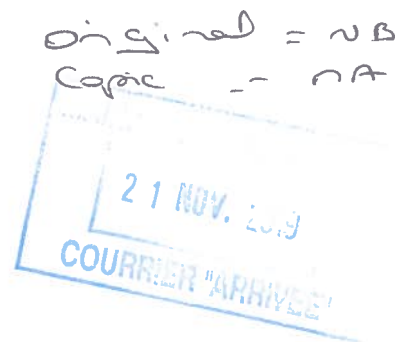 Original = NB
Copie = MA
21 NOV. 2019
COURRIER "ARRIVEE"